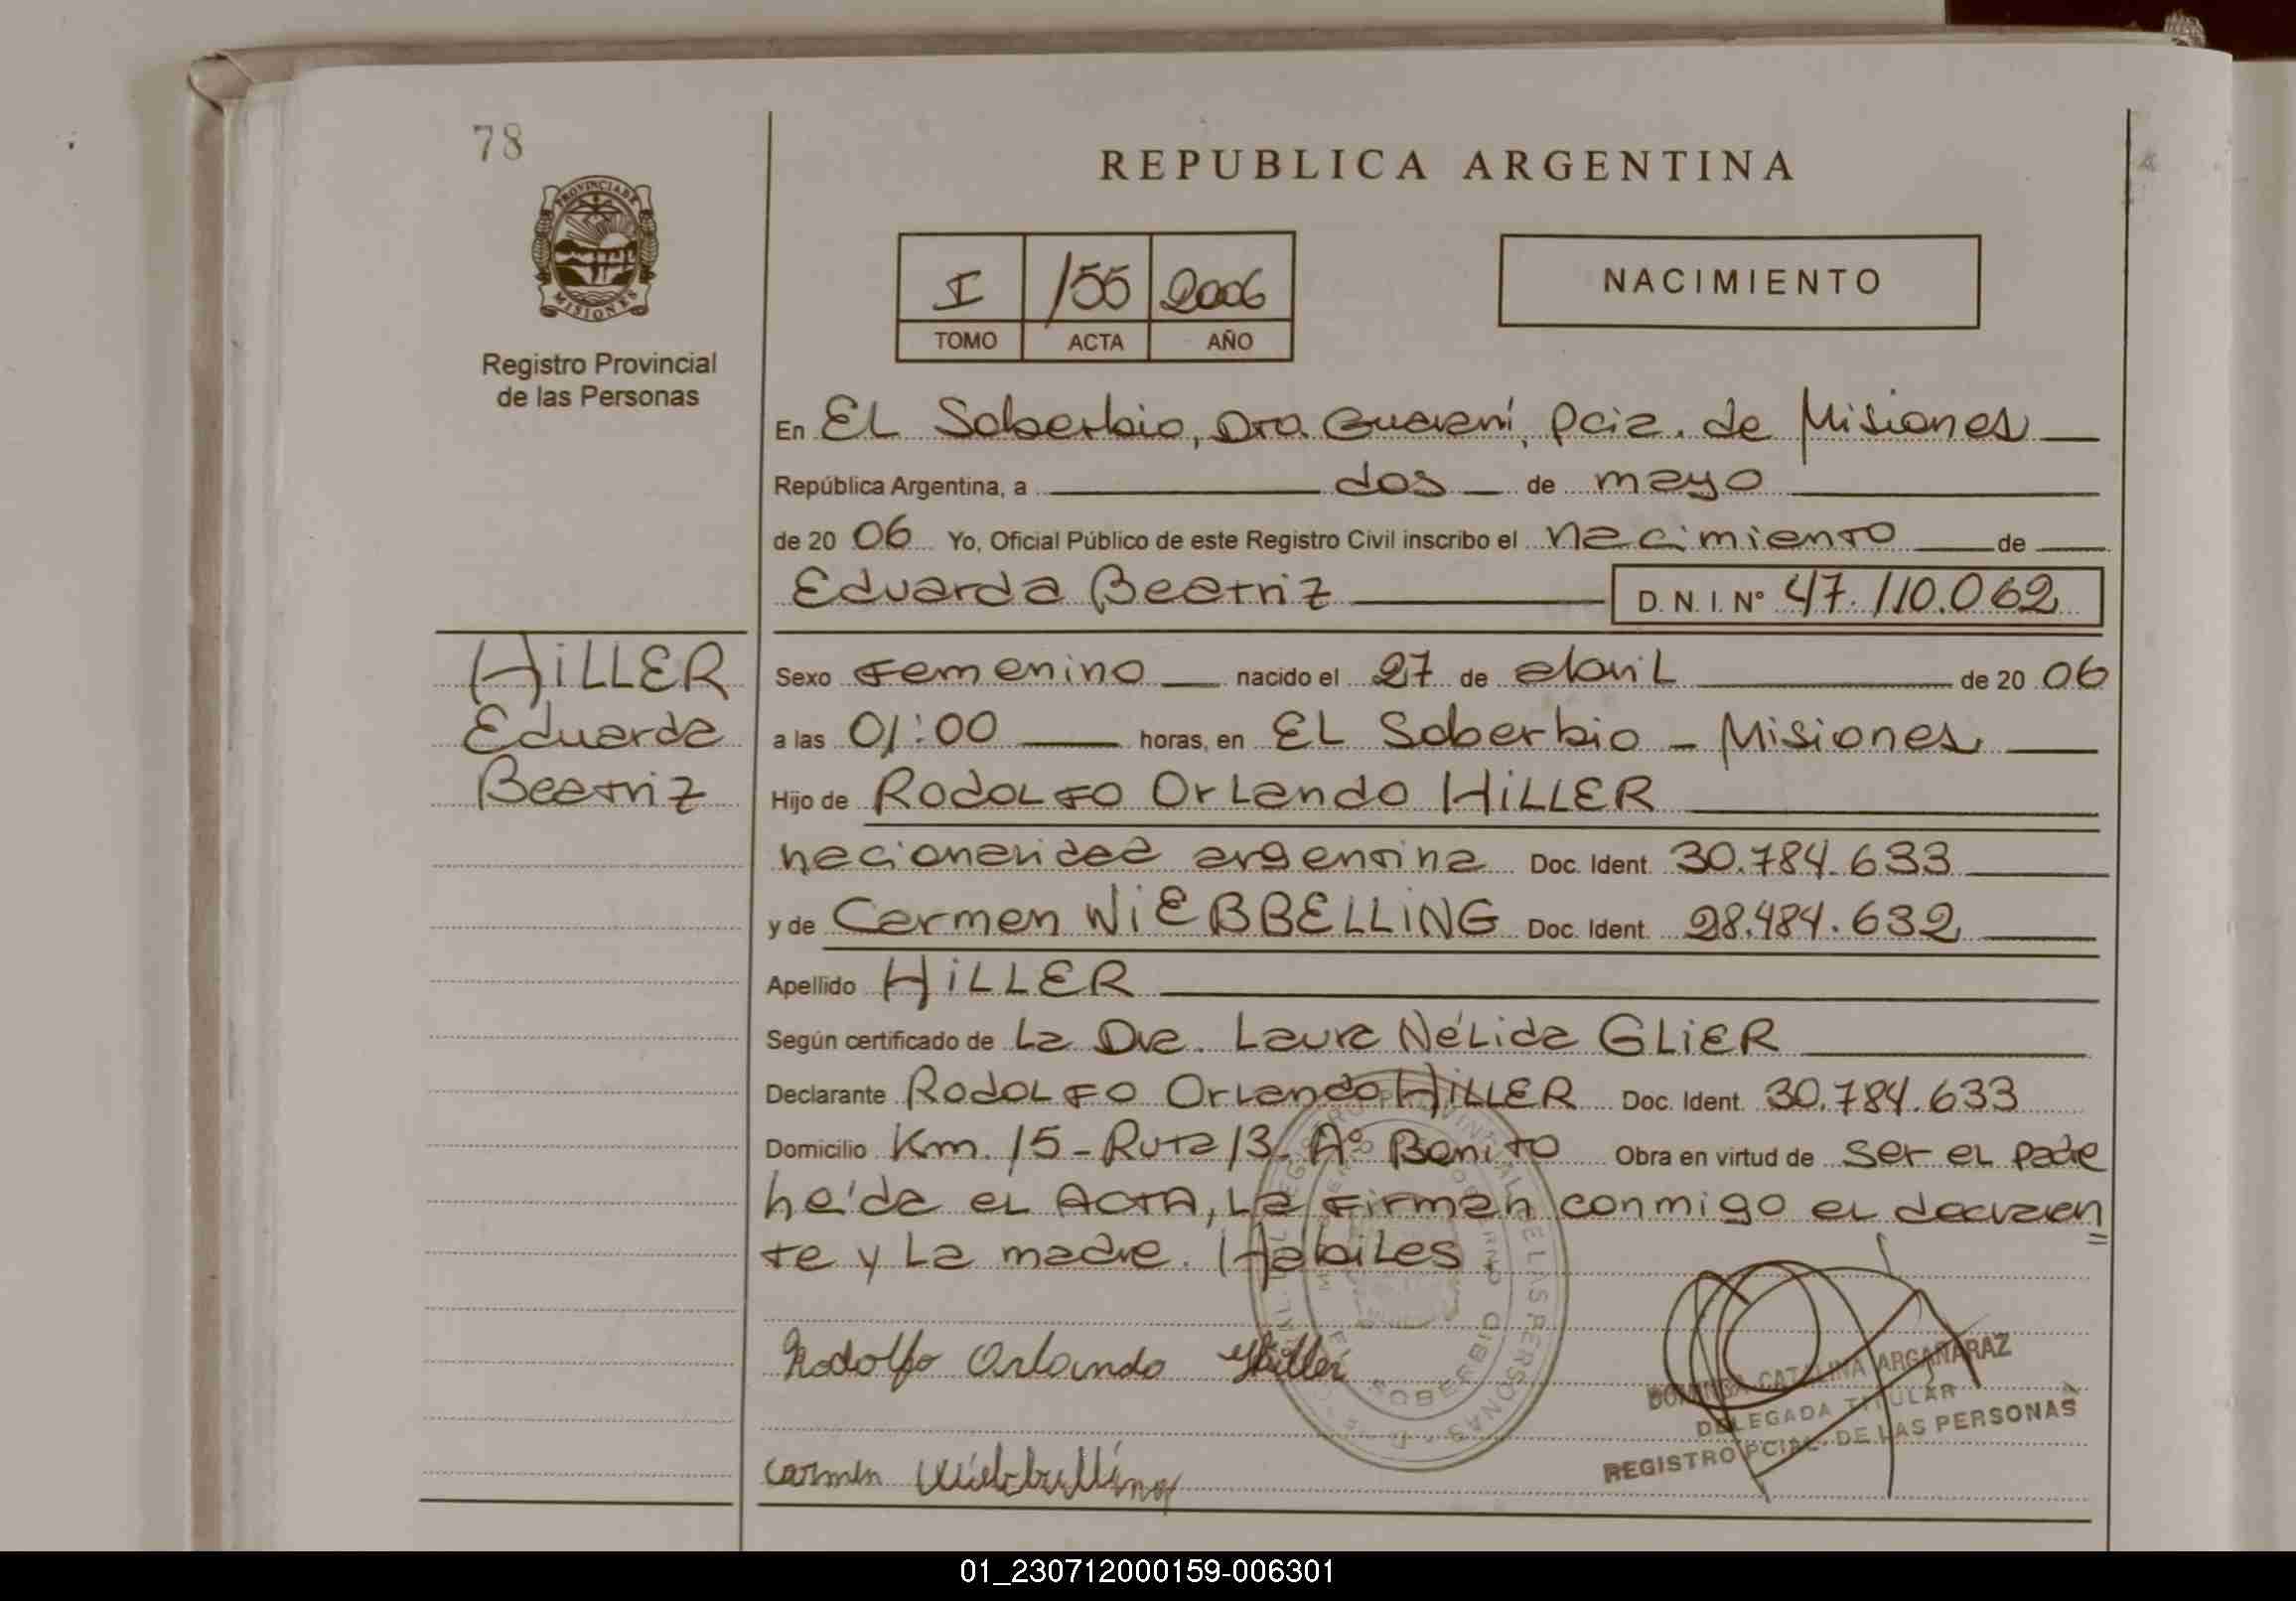 78
REPUBLICA ARGENTINA
PROVINCIA DE
MISIONES
Registro Provincial
de las Personas
I 155 2006
TOMO ACTA AÑO
NACIMIENTO
En EL Soberbio, Dto. Guaraní, Pcia. de Misiones
República Argentina, a dos de mayo
de 20 06 Yo, Oficial Público de este Registro Civil inscribo el nacimiento de
Eduarda Beatriz D. N. I. N° 47.110.062
HiLLER
Eduarda
Beatriz
Sexo Femenino nacido el 27 de abril de 20 06
a las 01:00 horas, en EL Soberbio - Misiones
Hijo de Rodolfo Orlando HiLLER
nacionalidad argentina Doc. Ident. 30.784.633
y de Carmen WiEBBELLiNG Doc. Ident. 28.484.632
Apellido HiLLER
Según certificado de La Dra. Laura Nélida GLiER
Declarante Rodolfo Orlando HiLLER Doc. Ident. 30.784.633
Domicilio Km. 15 - Ruta 13. Aº Bonito Obra en virtud de ser el padre
Leída el ACTA, La firman conmigo el declaran
te y La madre. Habiles.
Rodolfo Orlando Hiller
Carmen Wiebbelling
CATALINA ARGAÑARAZ
DELEGADA TITULAR
REGISTRO PCIAL. DE LAS PERSONAS
01_230712000159-006301